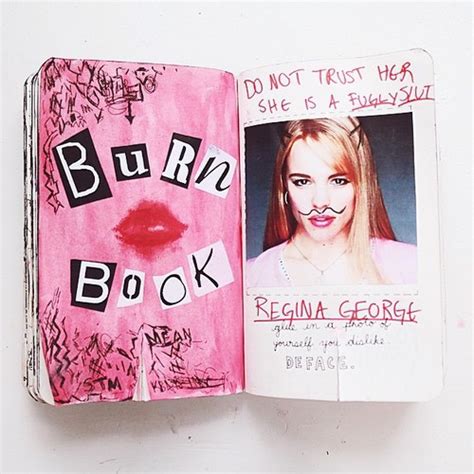 BuRn
BOOK
MEAN
STM
DO NOT TRUST HER
SHE IS A FUGLY SLUT
REGINA GEORGE
glue in a photo of
yourself you dislike.
DEFACE.